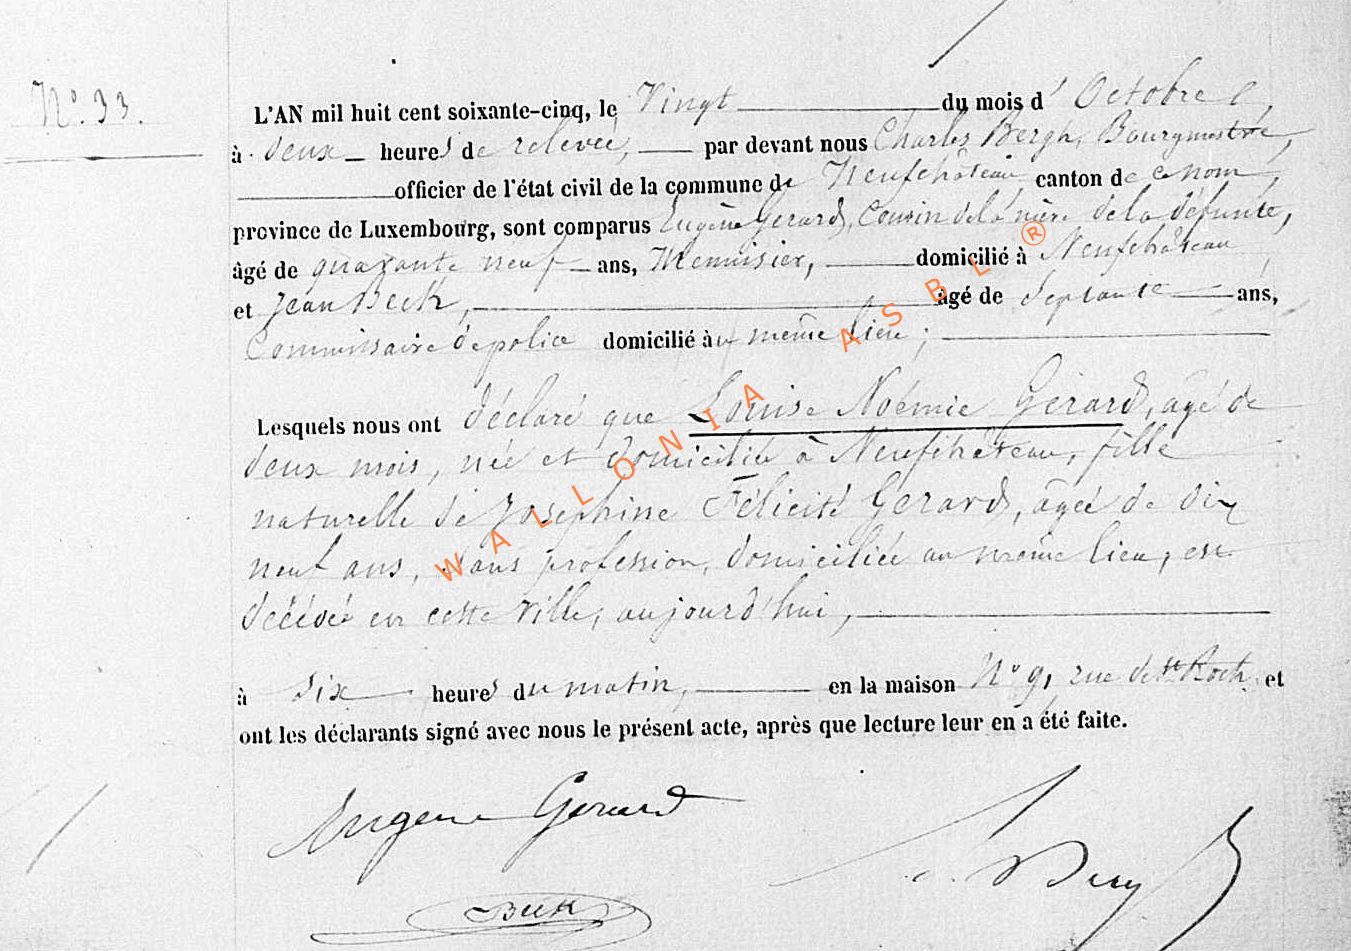 N° 33.
L'AN mil huit cent soixante-cinq, le Vingt du mois d'Octobre,
à deux heures de relevée, par devant nous Charles Bergh, Bourgmestre,
officier de l'état civil de la commune de Neufchâteau, canton de ce nom,
province de Luxembourg, sont comparus Eugène Gerard, Cousin de la mère de la défunte,
âgé de quarante neuf ans, Menuisier, domicilié à Neufchâteau
et Jean Beck, âgé de septante ans,
Commissaire de police domicilié au même lieu;
Lesquels nous ont déclaré que Louise Noémie Gérard, âgé de
deux mois, née et domiciliée à Neufchâteau, fille
naturelle de Joséphine Félicité Gerard, âgée de dix
neuf ans, sans profession, domiciliée au même lieu, est
décédée en cette ville, aujourd'hui,
à six heures du matin, en la maison N° 9, rue de St Roch, et
ont les déclarants signé avec nous le présent acte, après que lecture leur en a été faite.
Eugene Gerard
Beck
WALLONIA ASBL ®